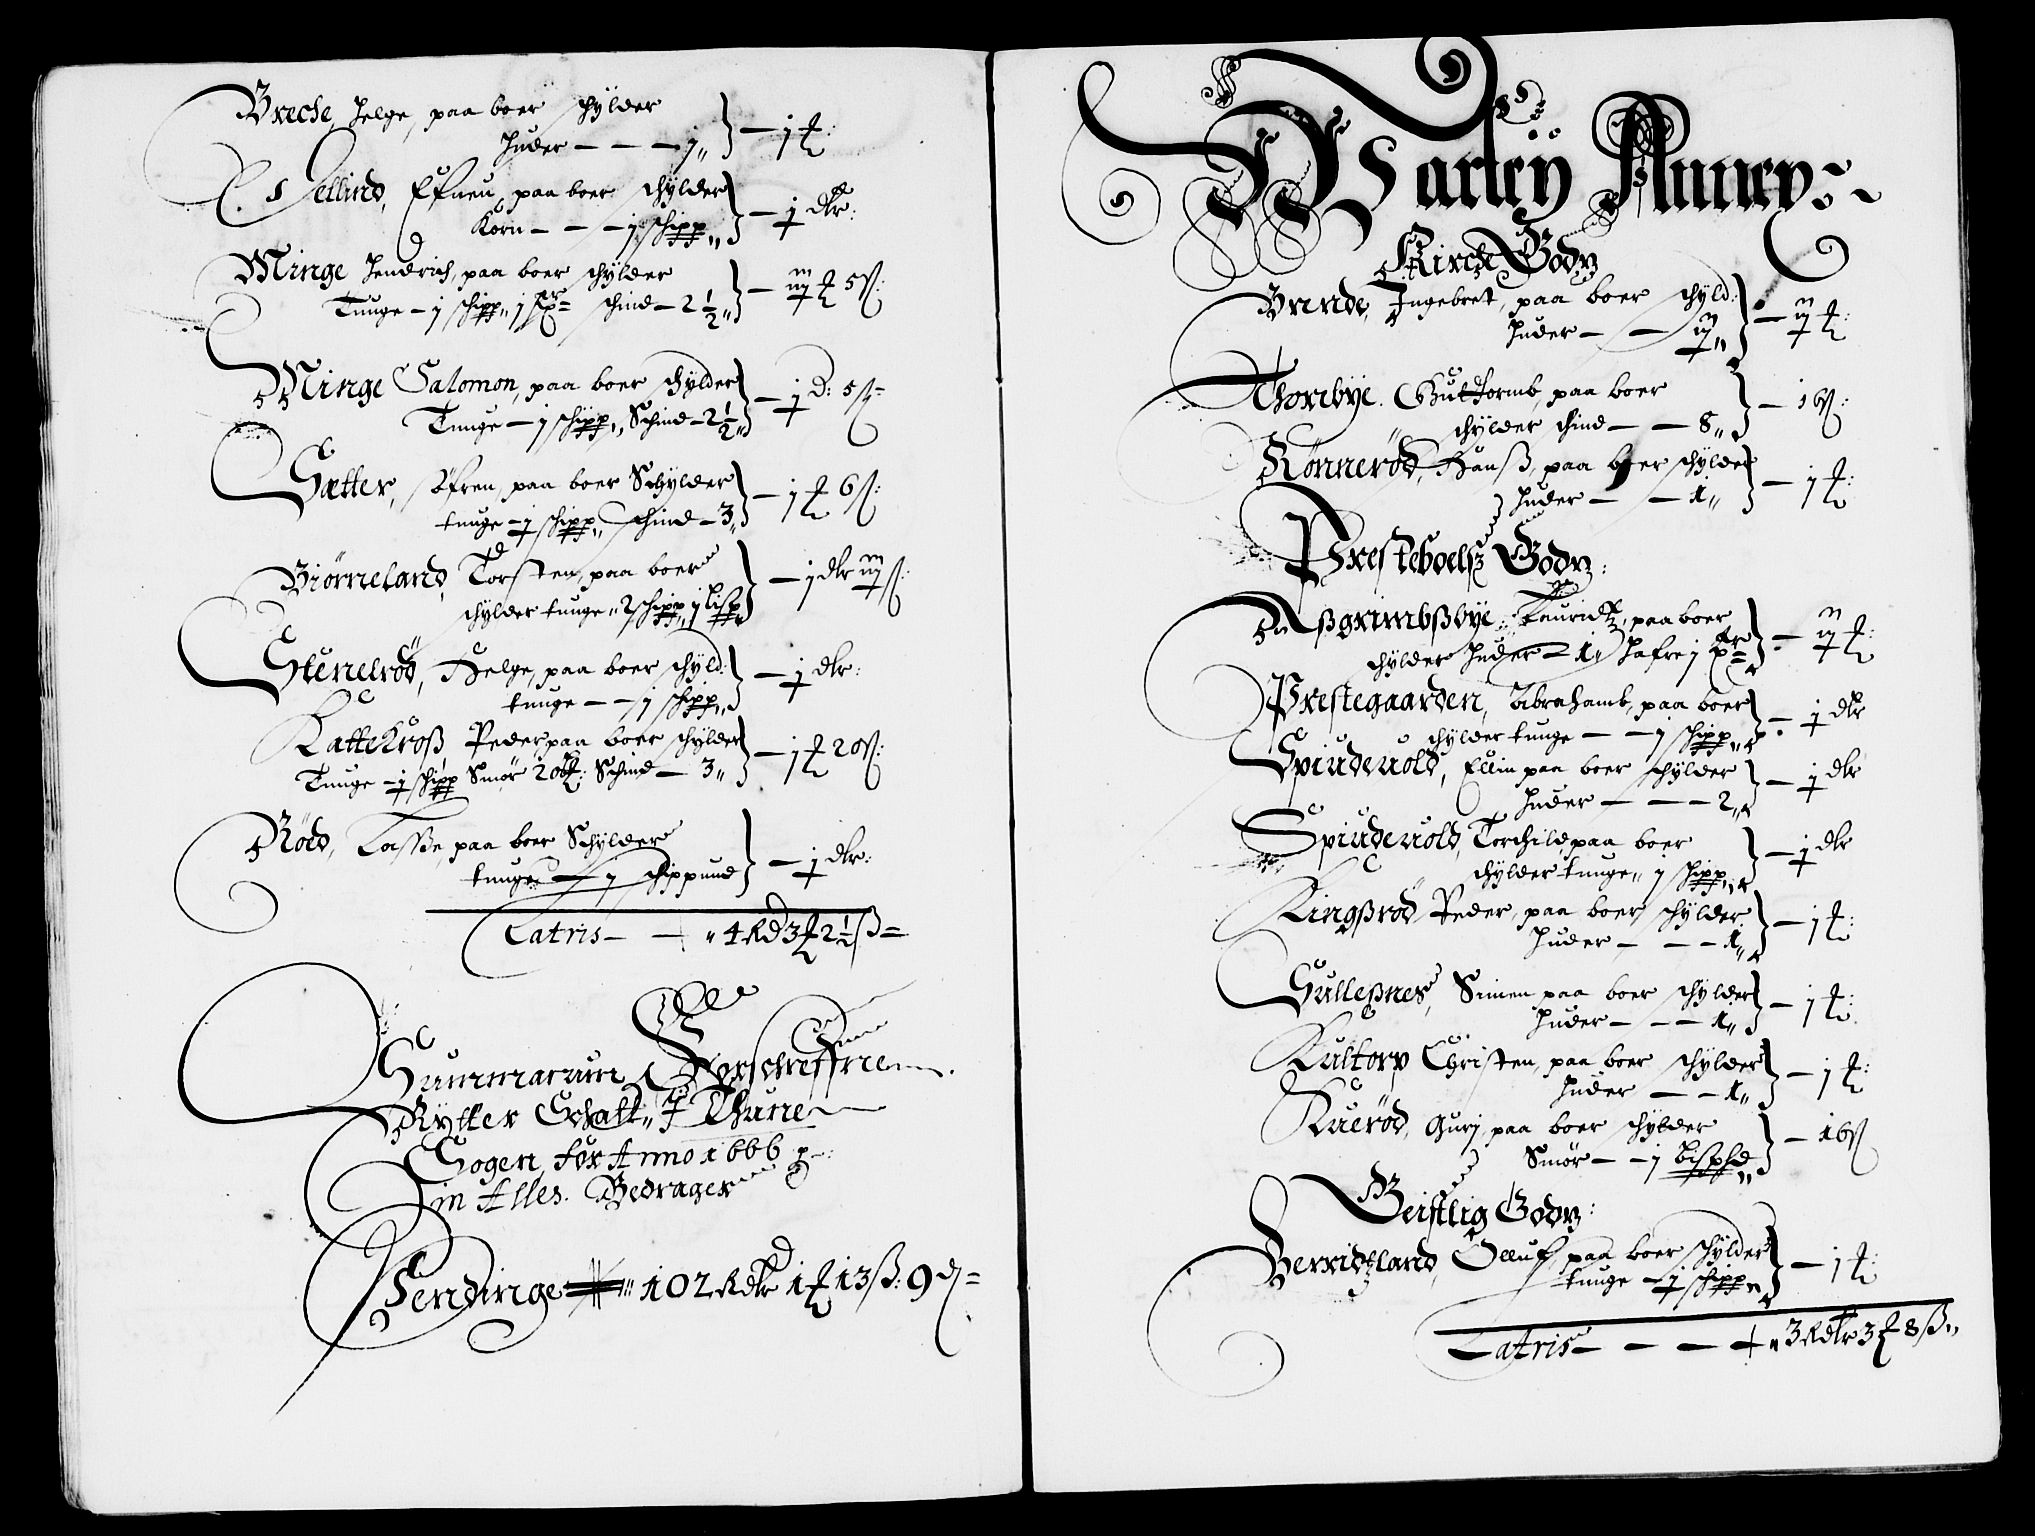 Breche, Helge, paa boer schylder
Huder — — — j „ } — j ₰:
Jellind, Efuen, paa boer schylder
Korn — — — j schipp „ } — j dlr:
Minge Hendrich, paa boer schylder
Tunge — j schipp „ schind — 2 1/2 „ } — iij ₰ 5 ß:
Minge Salomon, paa boer schylder
Tunge — j schipp „ Schind — 2 1/2 „ } — j D: 5 ß
Sætter, söfren, paa boer Schylder
tunge — j schipp „ schind — 3 „ } — j ₰ 6 ß:
Biörneland, Torsten, paa boer
schylder tunge „ 2 schipp j Lispd } — j dlr iij ß:
Stenelröd, Helge, paa boer schyld:
tunge — — j schipp „ } — j dlr:
Kattekroß Peder paa boer schylder
Tunge — j schipp Smör 20 ₰: Schind — 3 „ } — j ₰ 20 ß:
Röed, Lasße, paa boer Schylder
tunge — j schippund } — j dlr:
Latris — — „ 4 Rd 3 ₰ 2 1/2 ß
Summarum Forschreffne
Rytter Schatt „ J Thune
Sogen, för Anno 1666
in Alles. Bedrager
Pendinge 102 Rdlr 1 ₰ 13 ß: 9 d
Warteÿ Anney
Kircke Godtz
Brunde, Ingebret, paa boer schyld:
Huder — — ij „ } — ij ₰:
Thorebÿe. Guttormb, paa boer
schylder schind — — 8 „ } — 16 ß:
Rönneröd, Hanß, paa boer schylder
Huder — — 1 „ } — j ₰:
Presteboelsz Godtz:
Aßgrimbßbÿe, Lauridtz, paa boer
schylder Huder — 1 „ Hafre j } — ij ₰:
Prestegaarden, Abrahamb, paa boer
schylder tunge — — j schipp „ } — j dlr
Spiudeuold, Ellin paa boer schylder
Huder — — — 2 „ } — j dlr
Spiudeuold, Torchild, paa boer
schylder tunge „ j schipp „ } — j dlr
Kingßröd Peder, paa boer schylder
Huder — — — 1 „ } — j ₰:
Gulleßnes, Simen paa boer schylder
Huder — — — 1 „ } — j ₰:
Kultorp Christen, paa boer schylder
Huder — — 1 „ } — j ₰:
Kueröd, Gurj, paa boer schylder
Smör — — j Lispd „ } — 16 ß
Geistlig Godtz:
Berridtzland, Olluf, paa boer schylder
tunge — j schipp „ } — j ₰:
Latris — — — — „ 3 Rdlr 3 ₰ 8 ß „